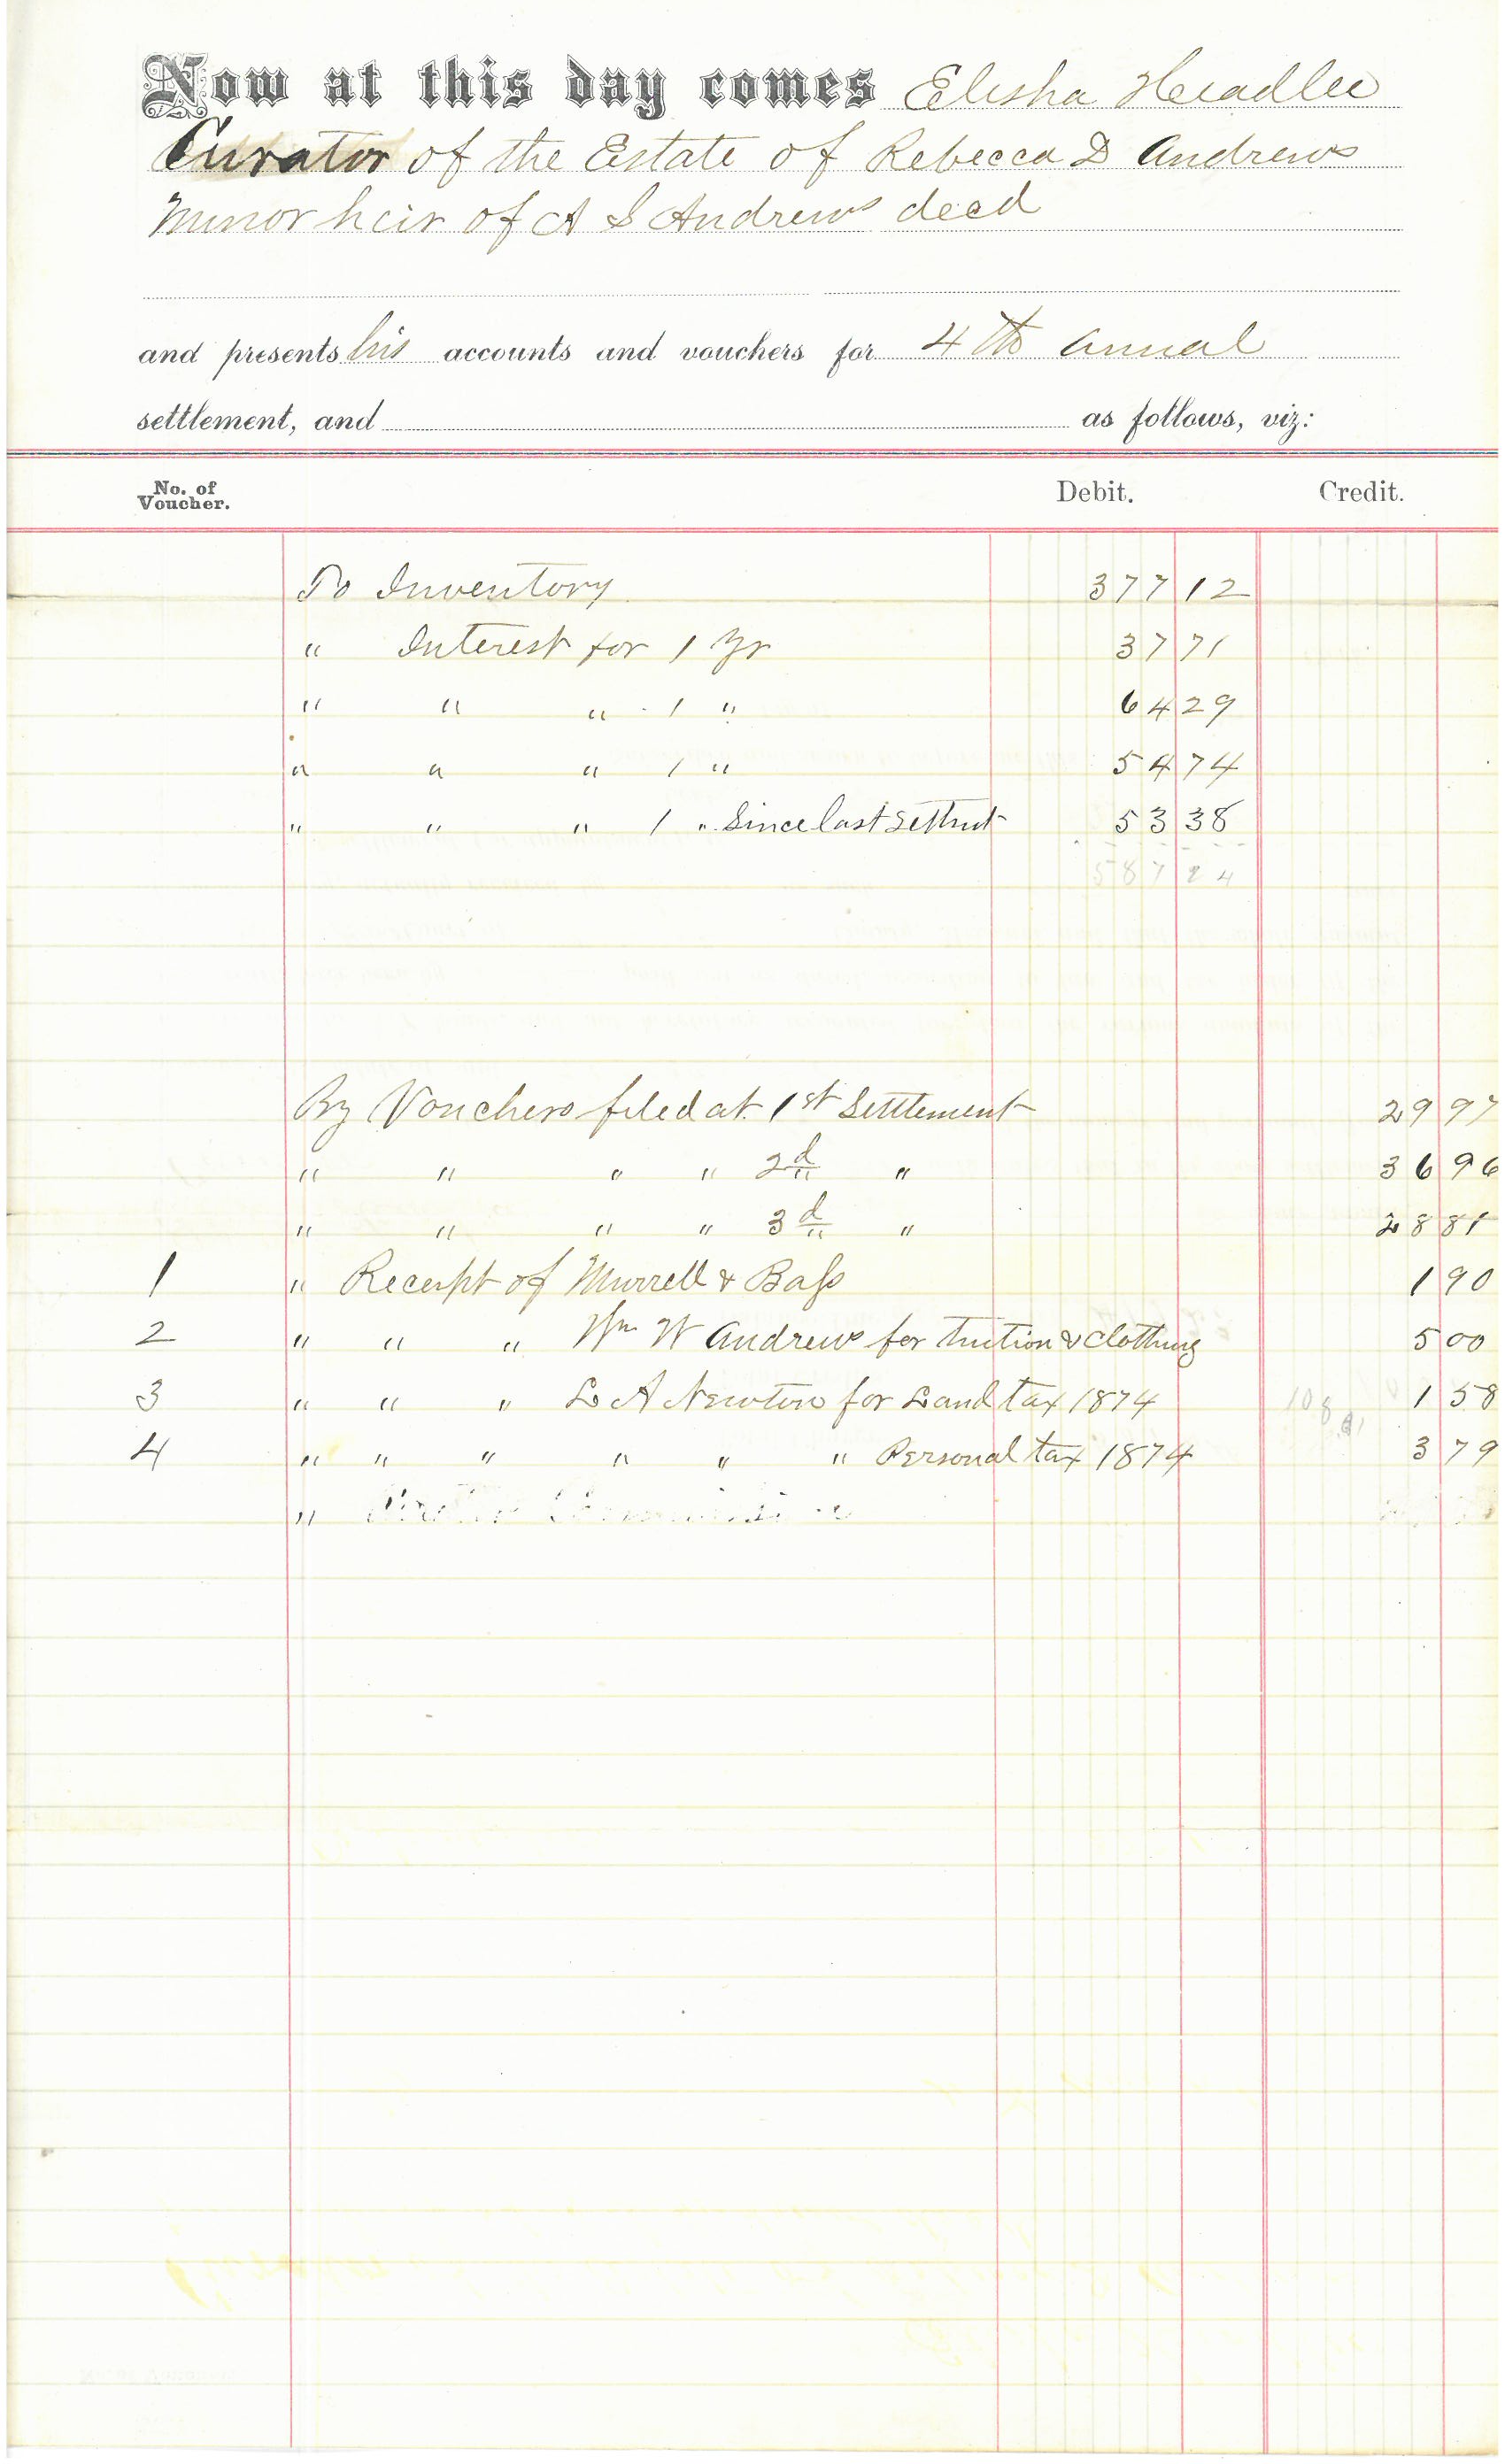 Now at this day comes Elisha Headlee
Curator of the Estate of Rebecca D Andrews
Minor heir of A S Andrews decd
and presents his accounts and vouchers for 4th annual
settlement, and as follows, viz:
No. of Voucher. Debit. Credit.
To Inventory 377 12
" Interest for 1 Yr 37 71
" " " 1 " 64 29
" " " 1 " 54 74
" " " 1 " Since last Settmt 53 38
587 24
By Vouchers filed at 1st Settlement 29 97
" " " " 2d " 36 96
" " " " 3d " 28 81
1 " Receipt of Murrell & Bass 1 90
2 " " " Wm W Andrews for Tuition & Clothing 5 00
3 " " " L A Newton for Land tax 1874 1 58
108 01
4 " " " " " " Personal tax 1874 3 79
"